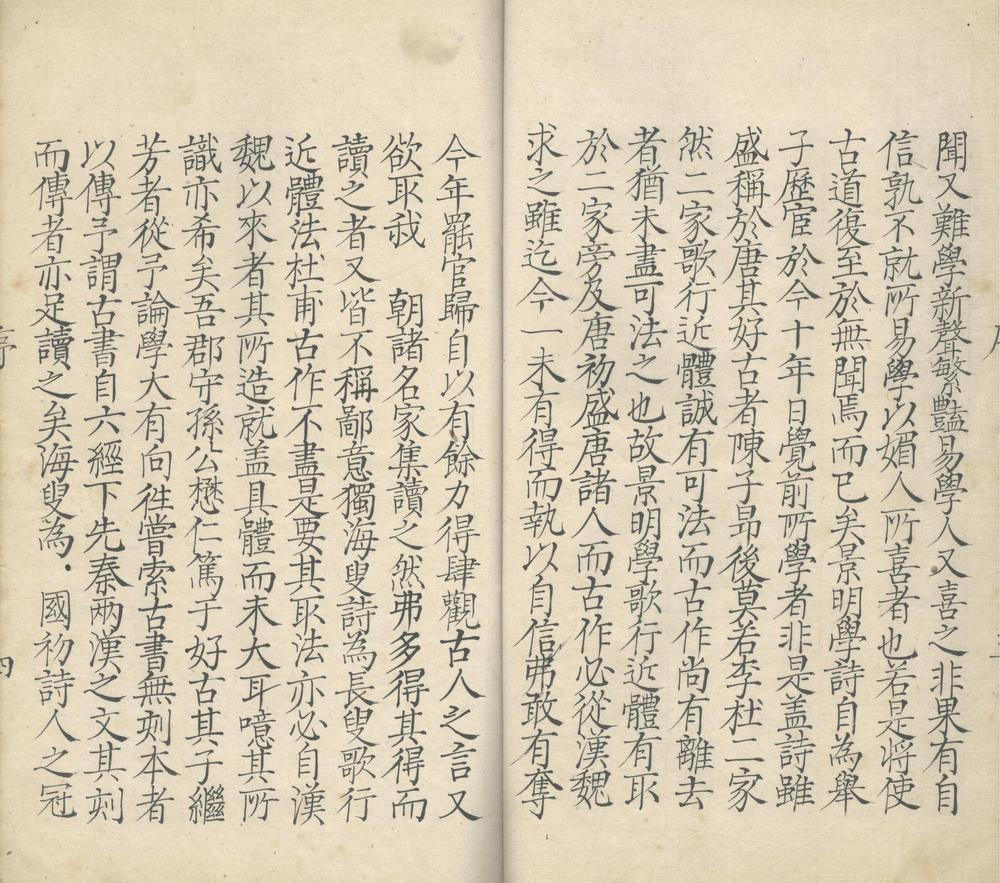 聞又難學新聲繁豔易學人又喜之非果有自
信孰不就所易學以媚人所喜者也若是将使
古道復至於無聞焉而已矣景明學詩自為舉
子歷宦於今十年日覺前所學者非是盖詩雖
盛稱於唐其好古者陳子昻後莫若李杜二家
然二家歌行近體誠有可法而古作尚有離去
者猶未盡可法之也故景明學歌行近體有取
於二家旁及唐初盛唐諸人而古作必從漢魏
求之雖迄今一未有得而執以自信弗敢有奪
今年罷官歸自以有餘力得肆觀古人之言又
欲取我 朝諸名家集讀之然弗多得其得而
讀之者又皆不稱鄙意獨海叟詩為長叟歌行
近體法杜甫古作不盡是要其取法亦必自漢
魏以來者其所造就盖具體而未大耳噫其所
識亦希矣吾郡守孫公懋仁篤于好古其子繼
芳者從予論學大有向徃嘗索古書無刻本者
以傳予謂古書自六經下先秦兩漢之文其刻
而傳者亦足讀之矣海叟為 國初詩人之冠
四